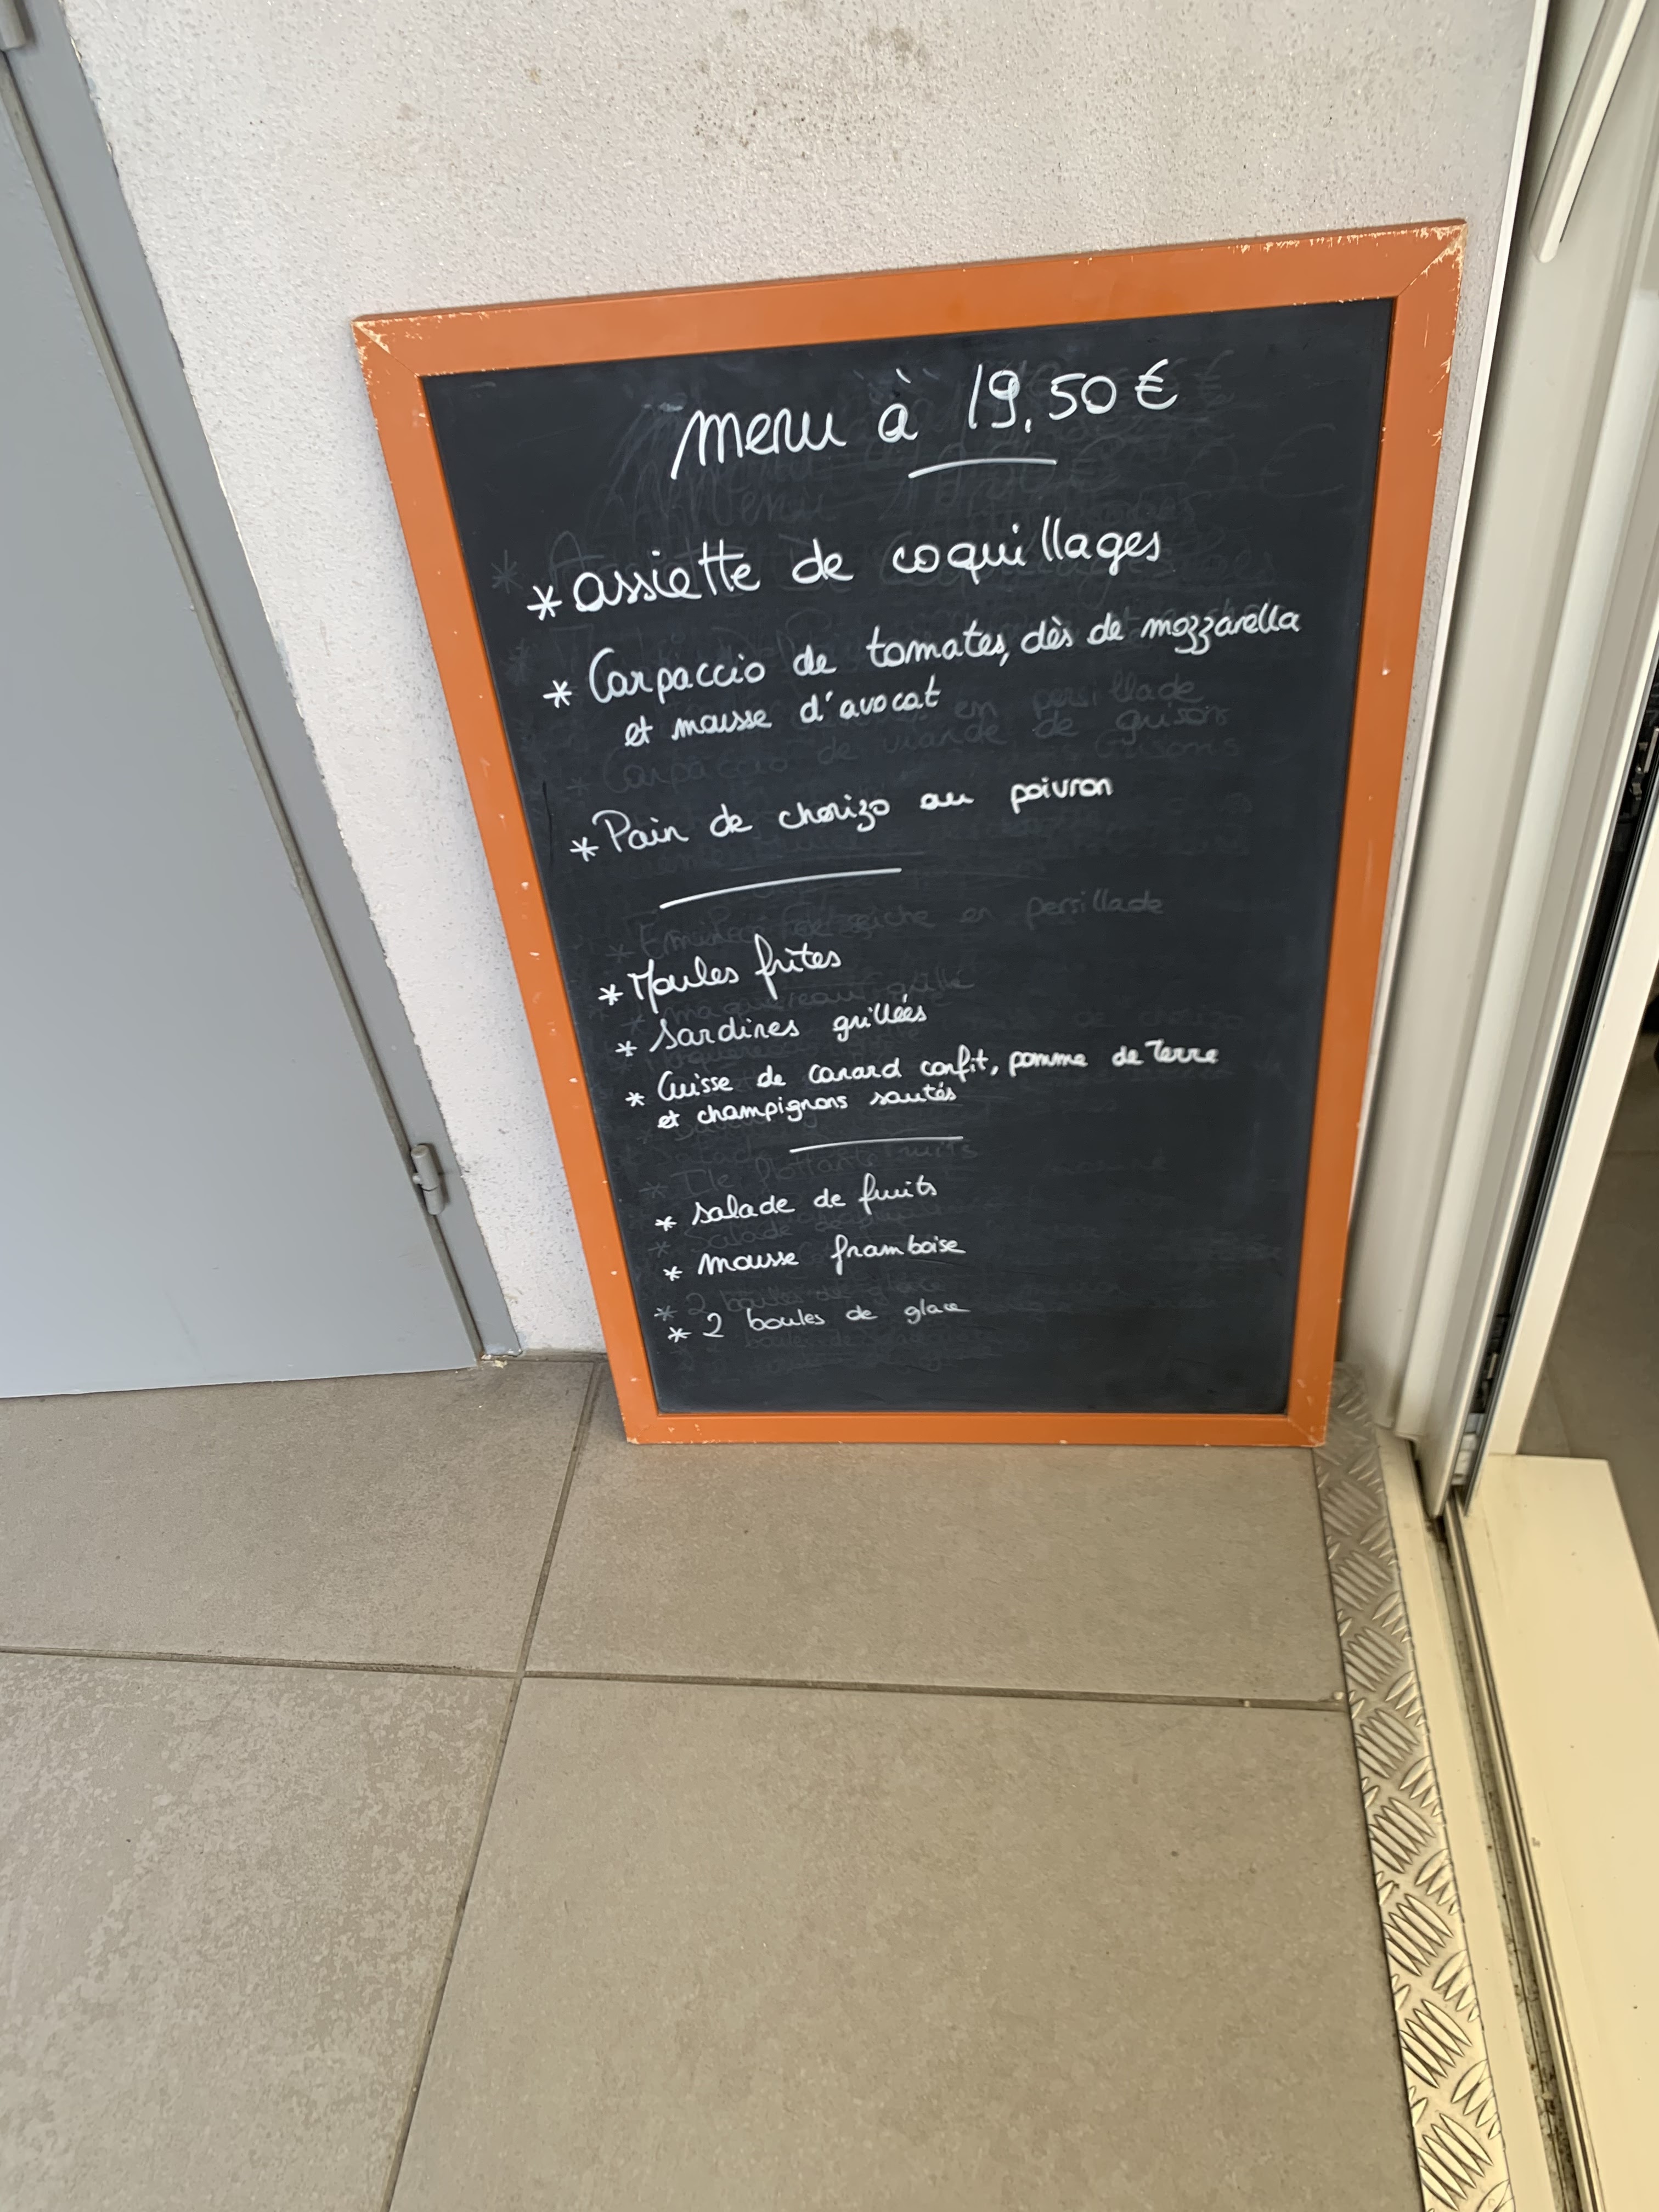 menu à 19,50 €
* assiette de coquillages
* Carpaccio de tomates, dès de mozzarella
et mousse d'avocat
* Pain de chorizo au poivron
* Moules frites
* Sardines grillées
* Cuisse de canard confit, pomme de terre
et champignons sautés
* salade de fruits
* mousse framboise
* 2 boules de glace